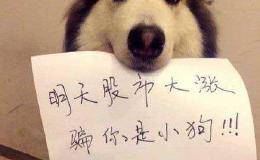 明天股市大涨
骗你是小狗!!!